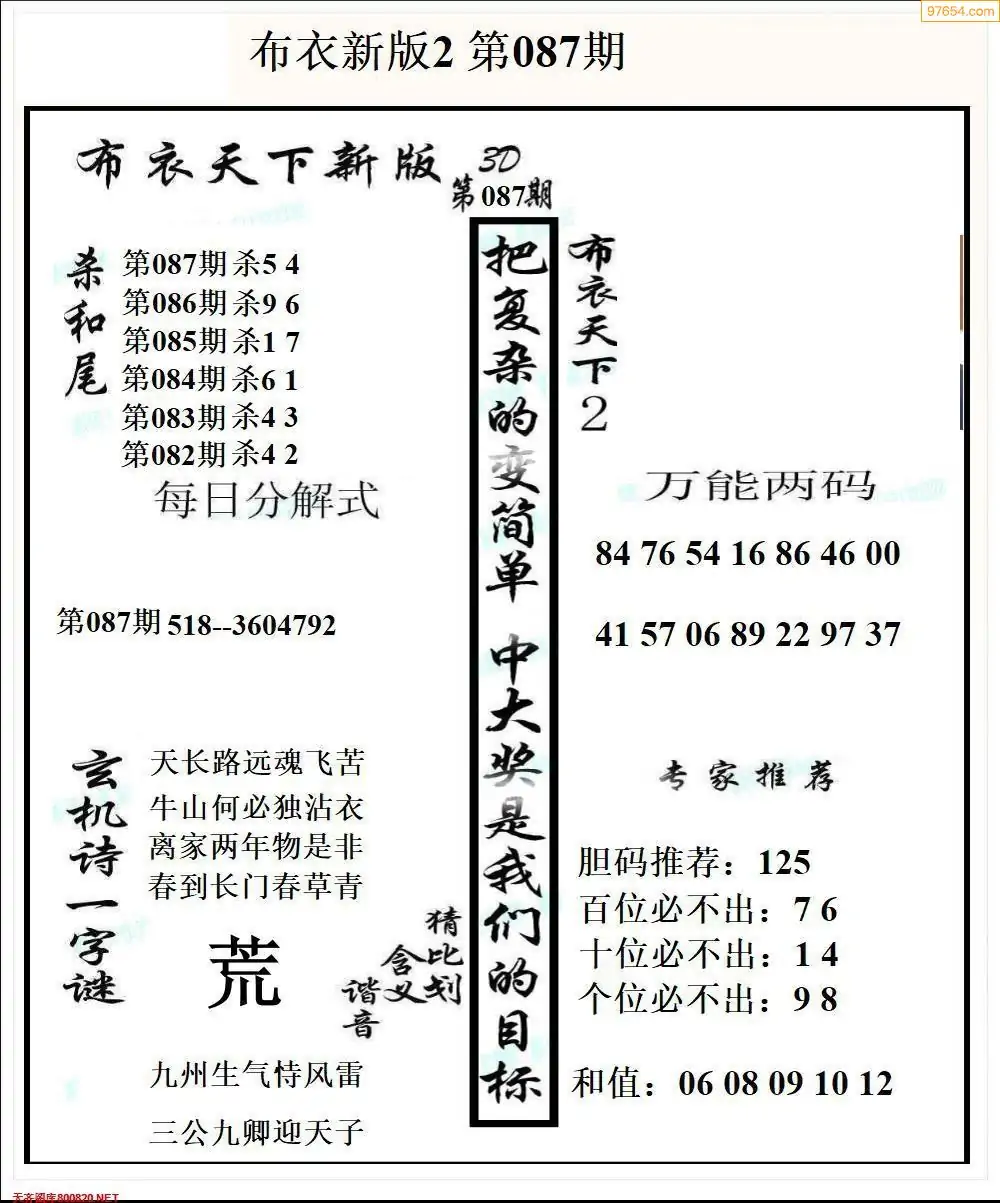 97654.com
布衣新版2 第087期
布衣天下新版
3D
第087期
杀和尾
第087期杀5 4
第086期杀9 6
第085期杀1 7
第084期杀6 1
第083期杀4 3
第082期杀4 2
每日分解式
第087期 518--3604792
把复杂的变简单 中大奖是我们的目标
布衣天下2
万能两码
84 76 54 16 86 46 00
41 57 06 89 22 97 37
玄机诗一字谜
天长路远魂飞苦
牛山何必独沾衣
离家两年物是非
春到长门春草青
荒
猜比划
含义
谐音
九州生气恃风雷
三公九卿迎天子
专家推荐
胆码推荐：125
百位必不出：7 6
十位必不出：1 4
个位必不出：9 8
和值：06 08 09 10 12
天齐图库800820.NET